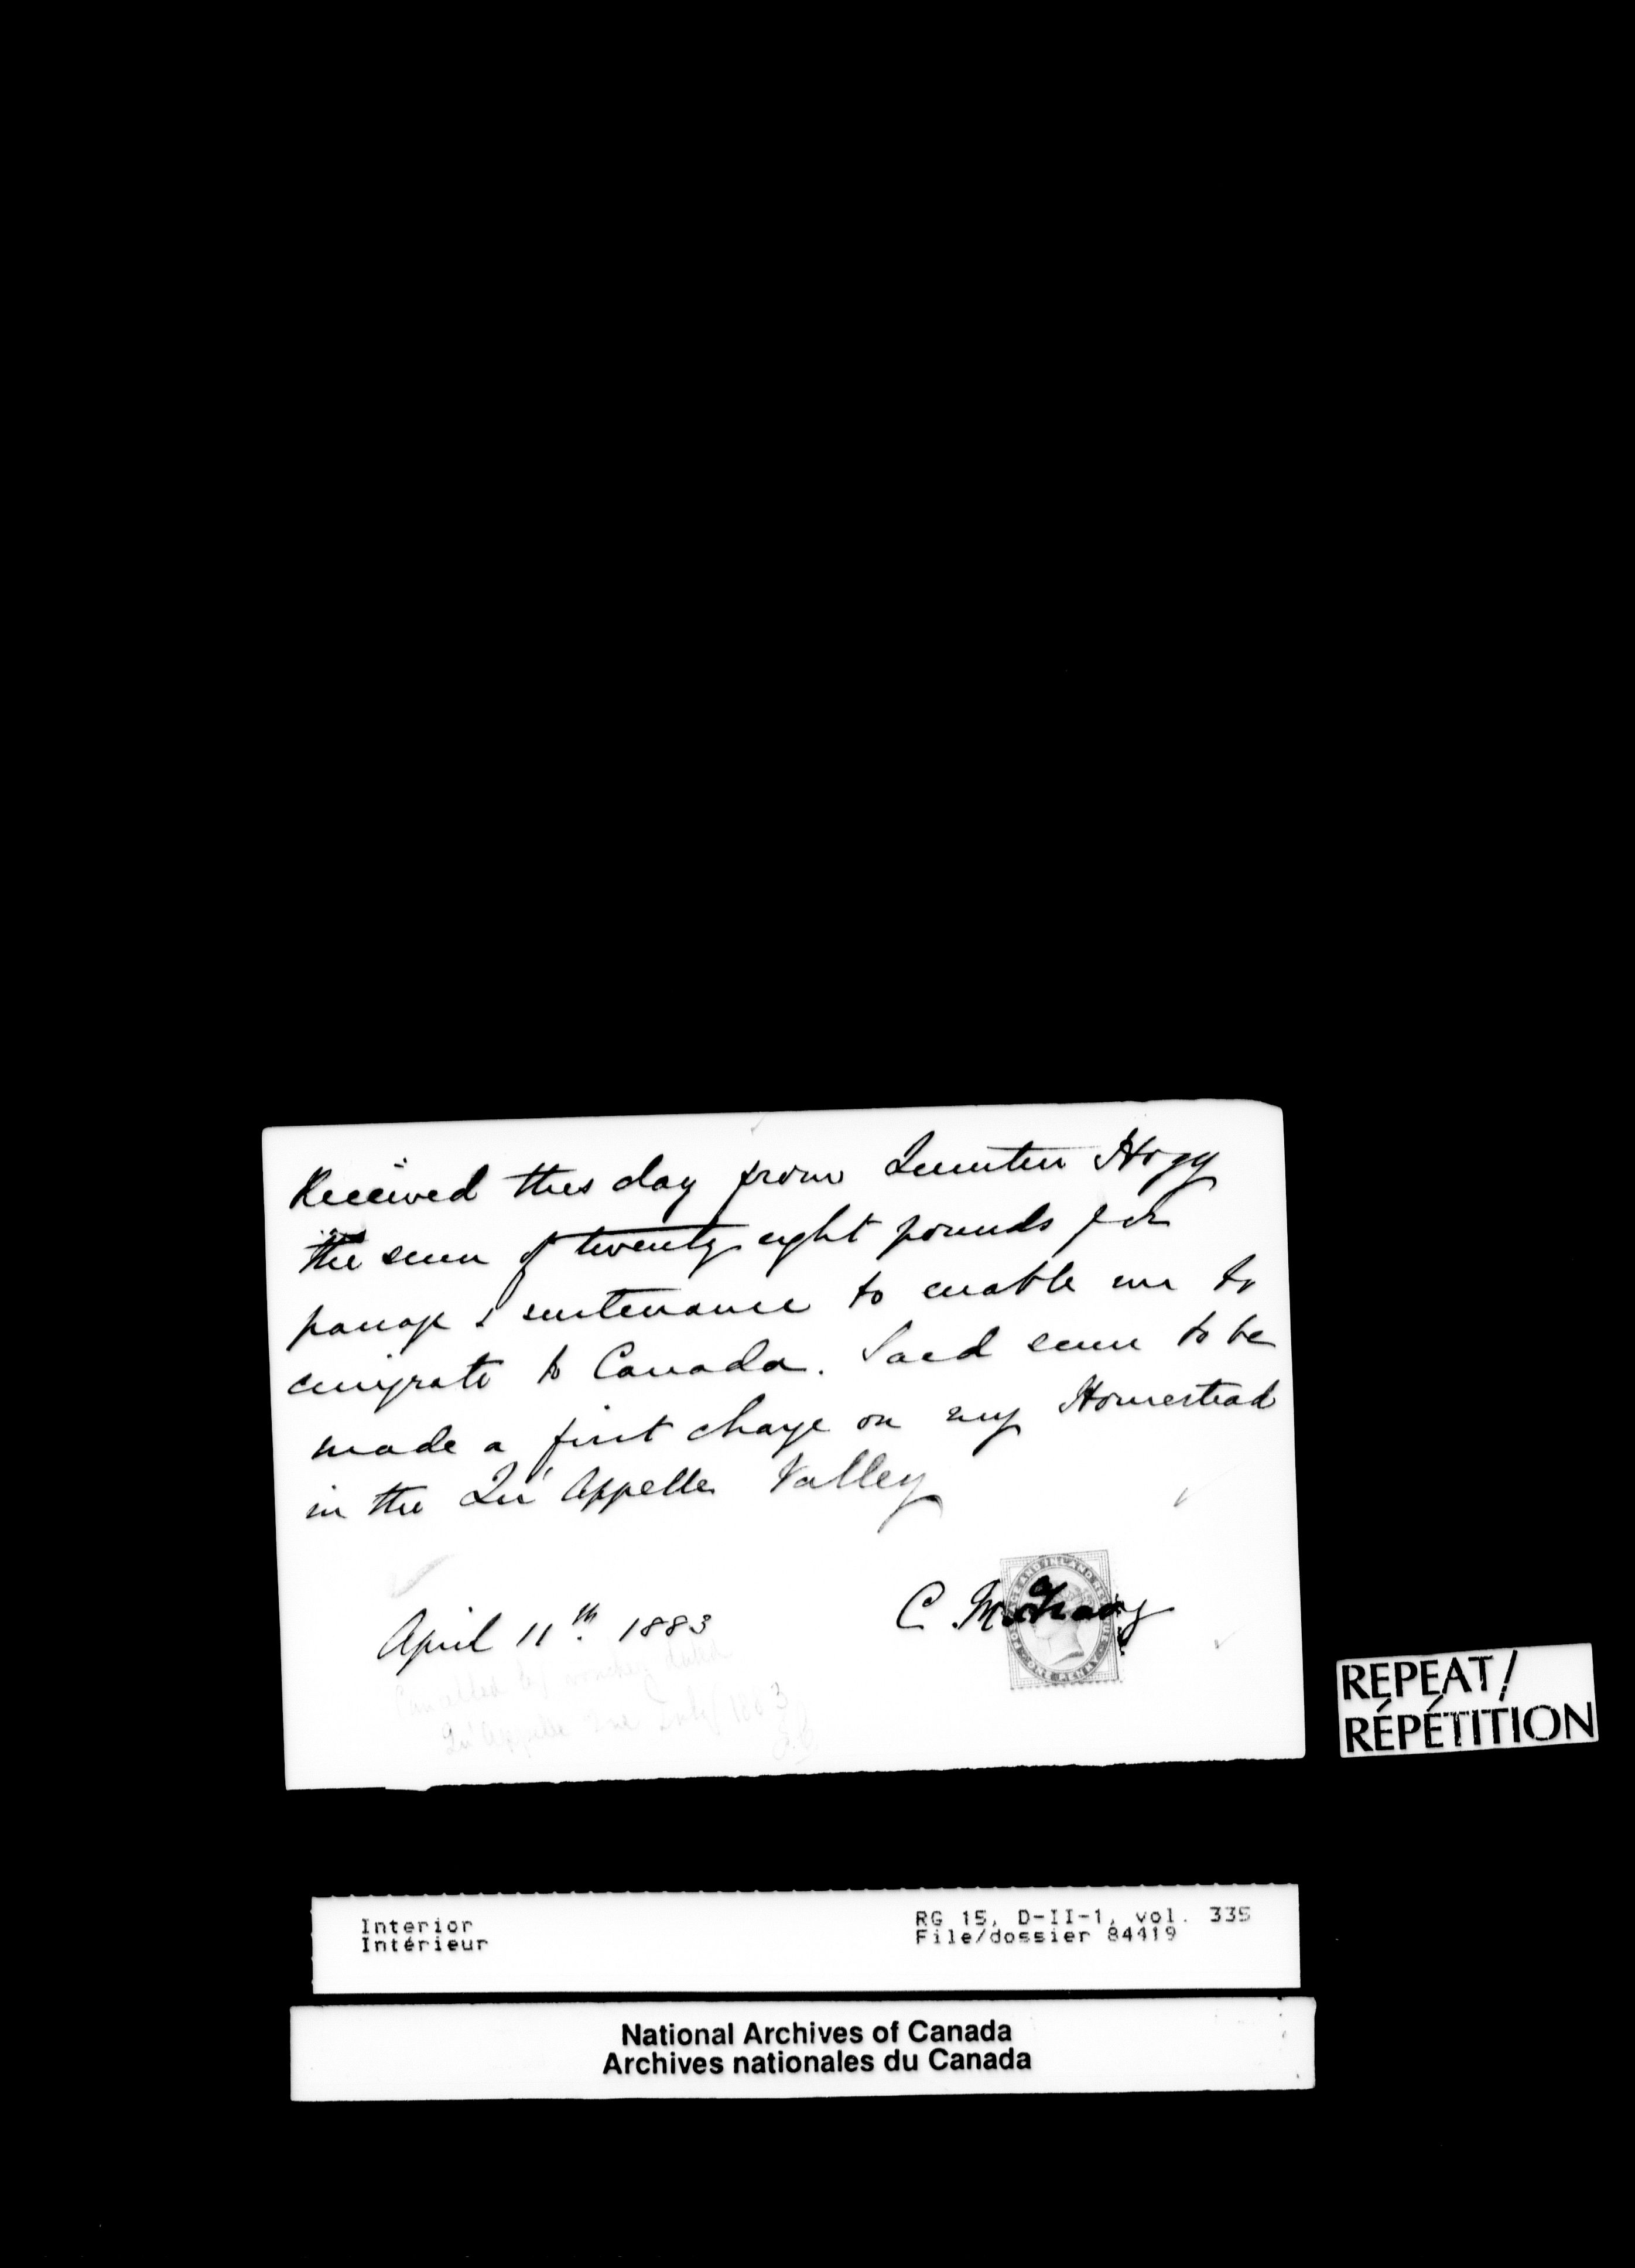 Received this day from Quintin Hogg
the sum of twenty eight pounds for
passage & sustenance to enable me to
emigrate to Canada. Said sum to be
made a first charge on my Homestead
in the Qu'Appelle Valley
April 11th. 1883
C
POSTAGE AND INLAND REVENUE
ONE PENNY
Cancelled by voucher dated
Qu'Appelle 2nd July 1883
REPEAT/
RÉPÉTITION
Interior
Intérieur
RG 15, D-II-1, vol. 335
File/dossier 84419
National Archives of Canada
Archives nationales du Canada